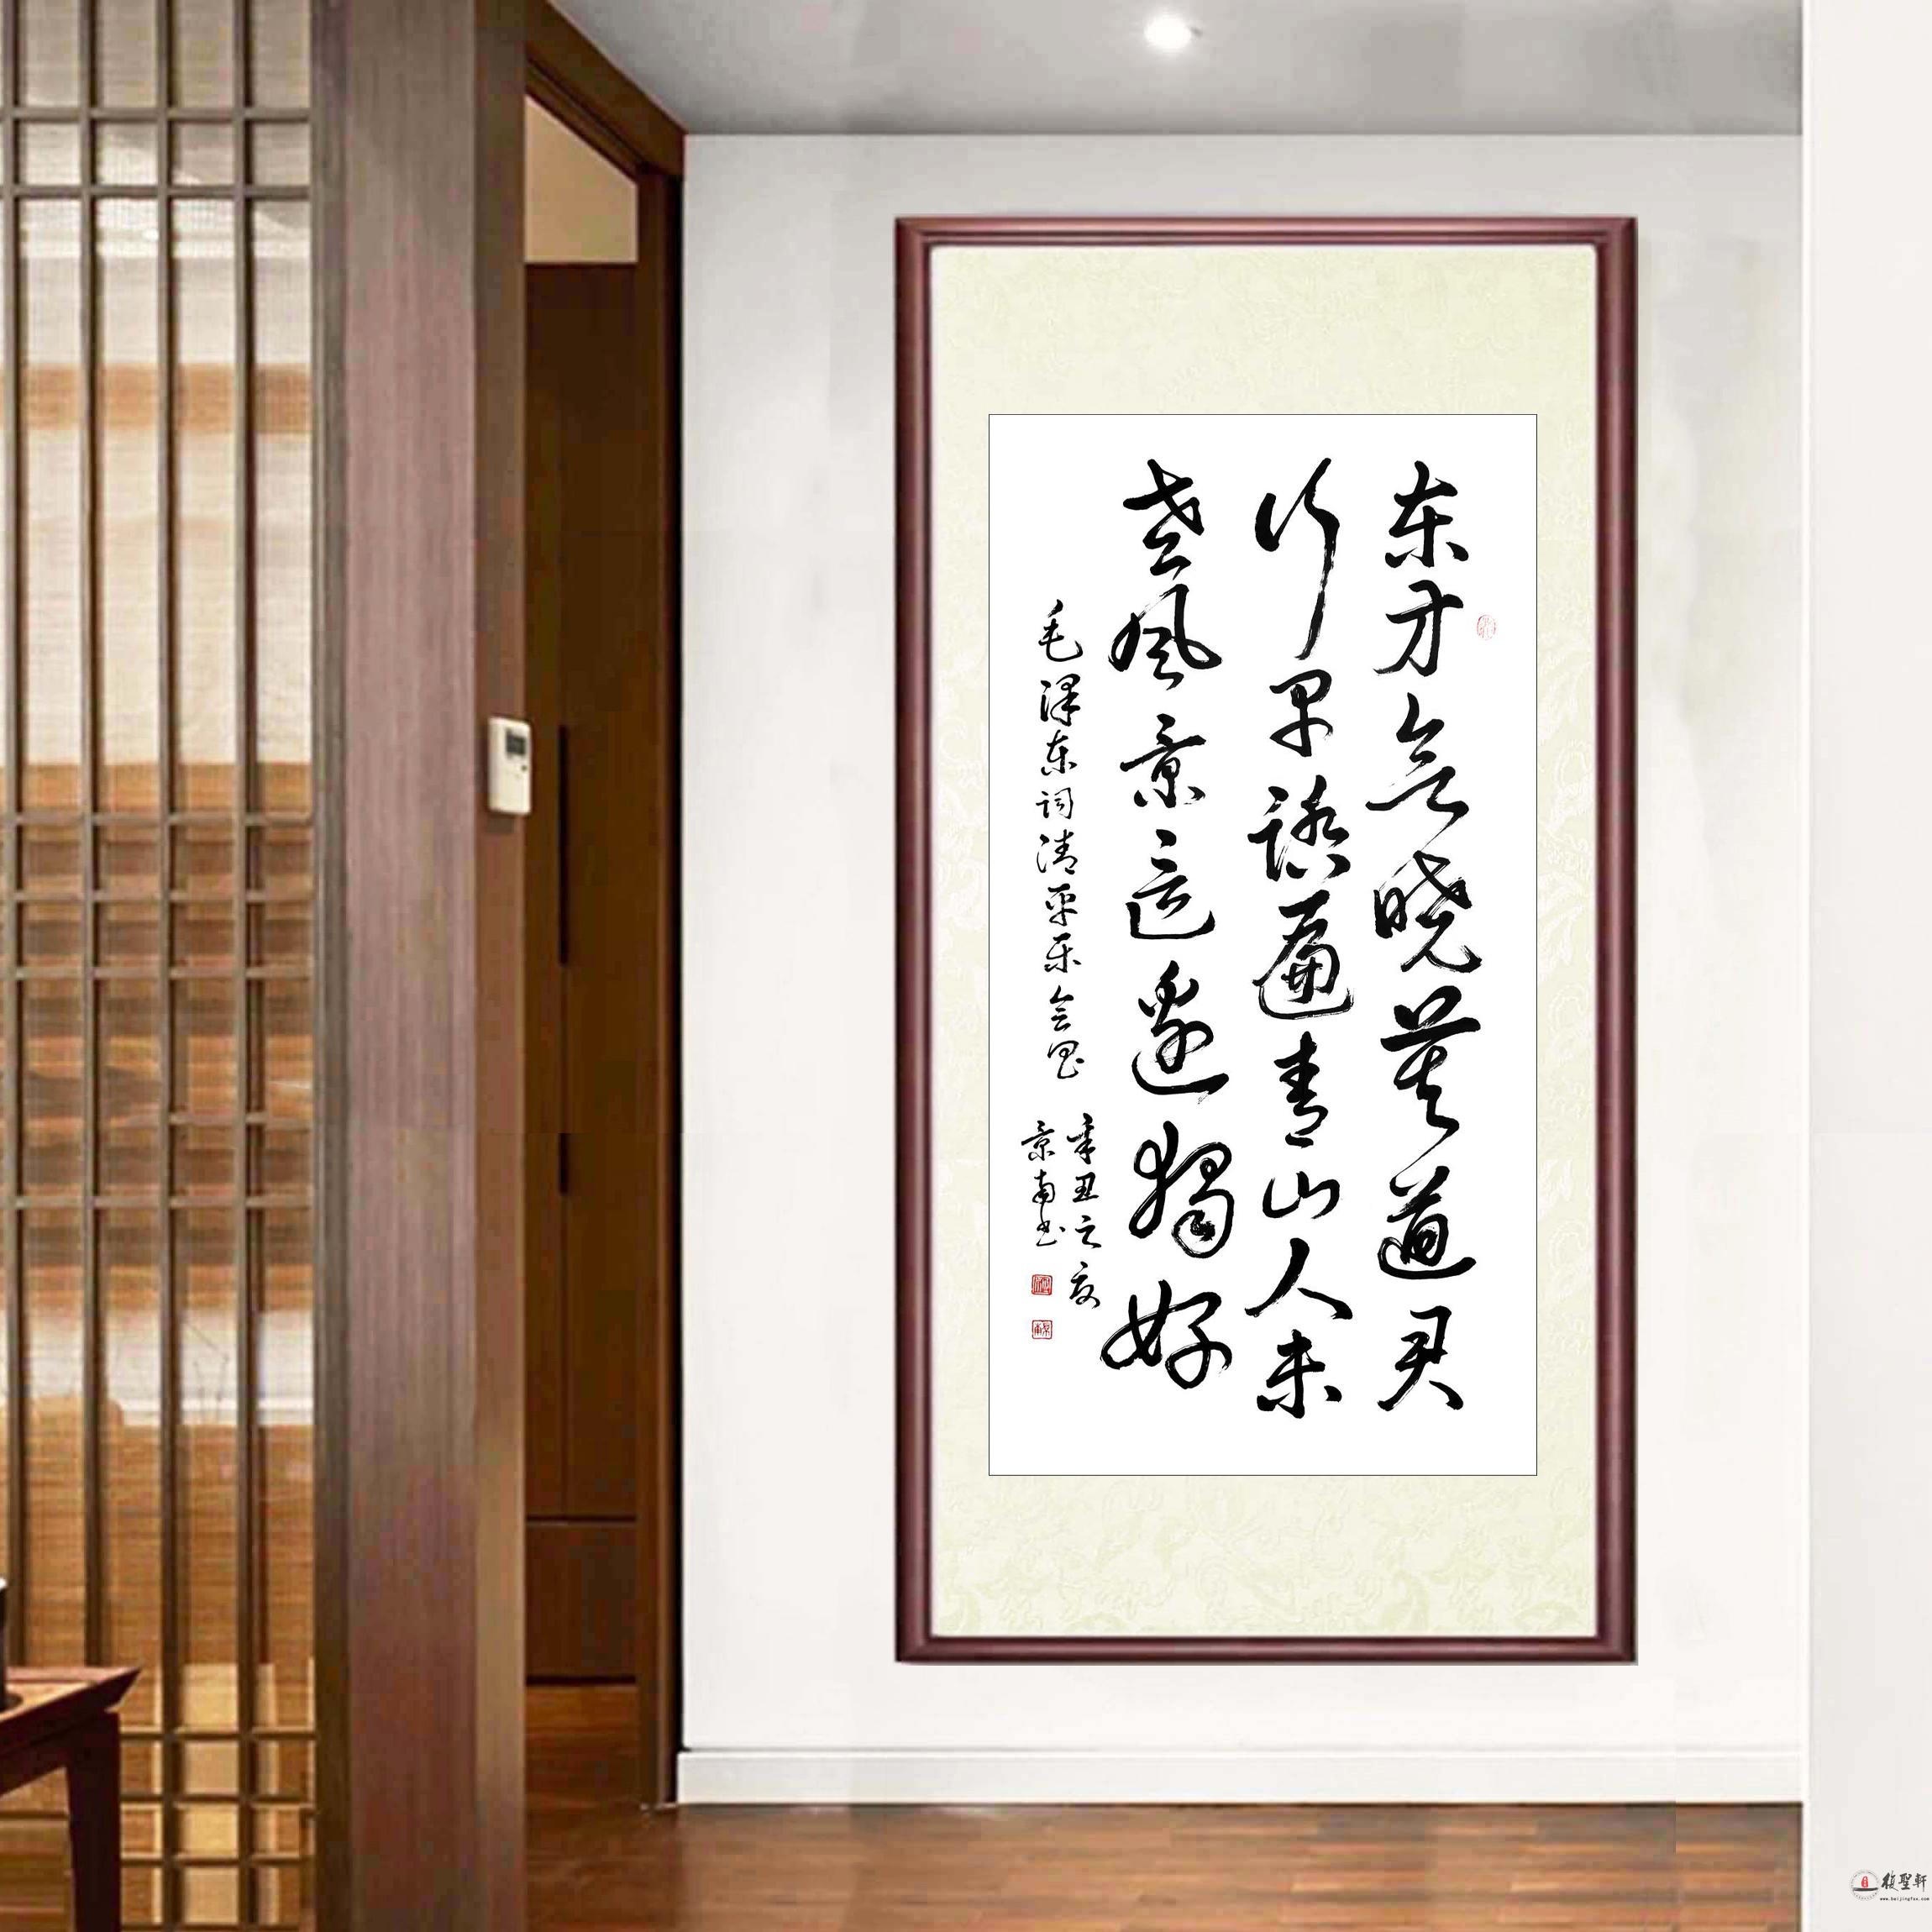 东方欲晓莫道君
行早踏遍青山人未
老风景这邊獨好
毛泽东词清平乐会昌
辛丑之夏
景南书
復聖軒
www.beijingfsx.com